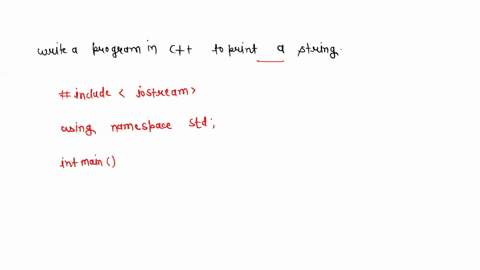 write a program in C++ to print a string.
#include < iostream>
using namespace std;
int main()